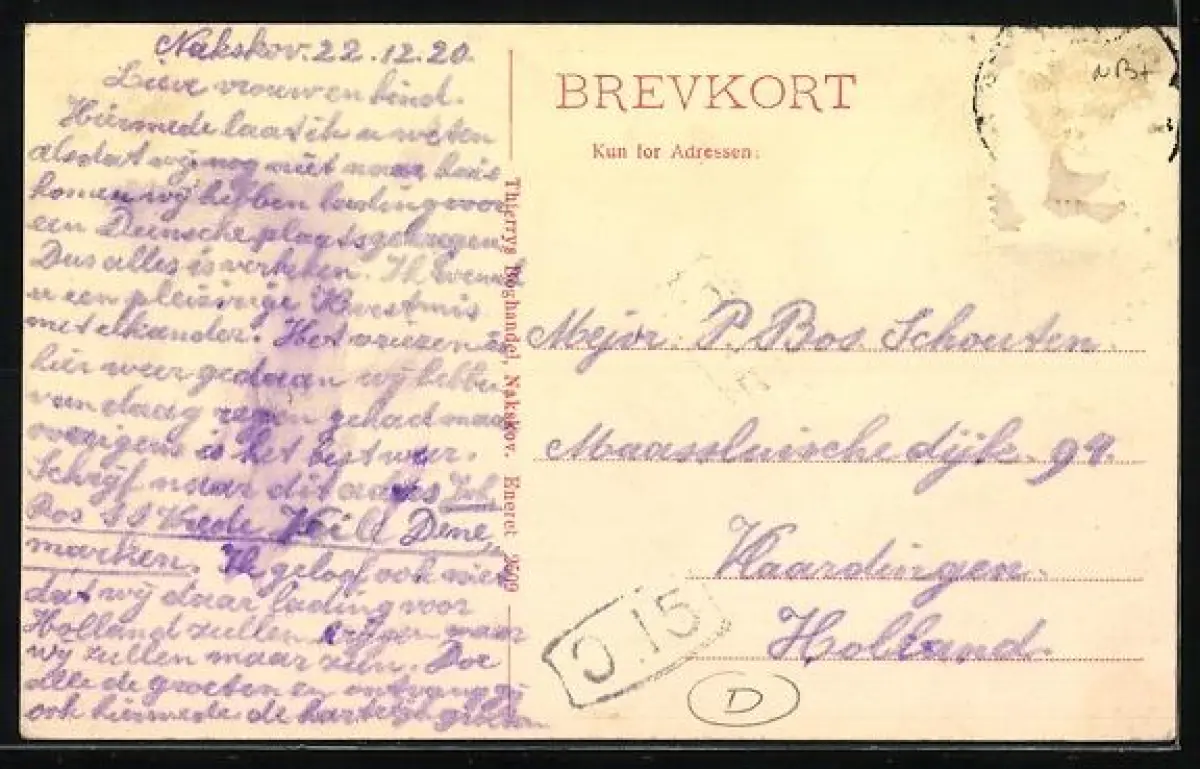 Nakskov. 22.12.20.
Lieve vrouw en kind.
Hiermede laat ik u weten
alsdat wij nog niet naar huis
komen wij hebben lading voor
een Deensche plaats gekregen
Dus alles is verkeken. Ik wensch
u een pleizirige Kerstmis
met elkander. Het vriezen is
hier weer gedaan wij hebben
van daag regen gehad maar
overigens is het best weer.
Schrijf naar dit adres Joh.
Bos SS Vrede Denemarken. Ik geloof ook niet
dat wij daar lading voor
Holland zullen krijgen maar
wij zullen maar zien. Doe
alle de groeten en ontvang gij
ook hiermede de hartelijk
Thierrys Boghandel, Nakskov. Eneret
BREVKORT
Kun for Adressen:
NB+
Mejor. P. Bos Schouten
Maassluische dijk. 94.
Vaardingen.
Holland.
D